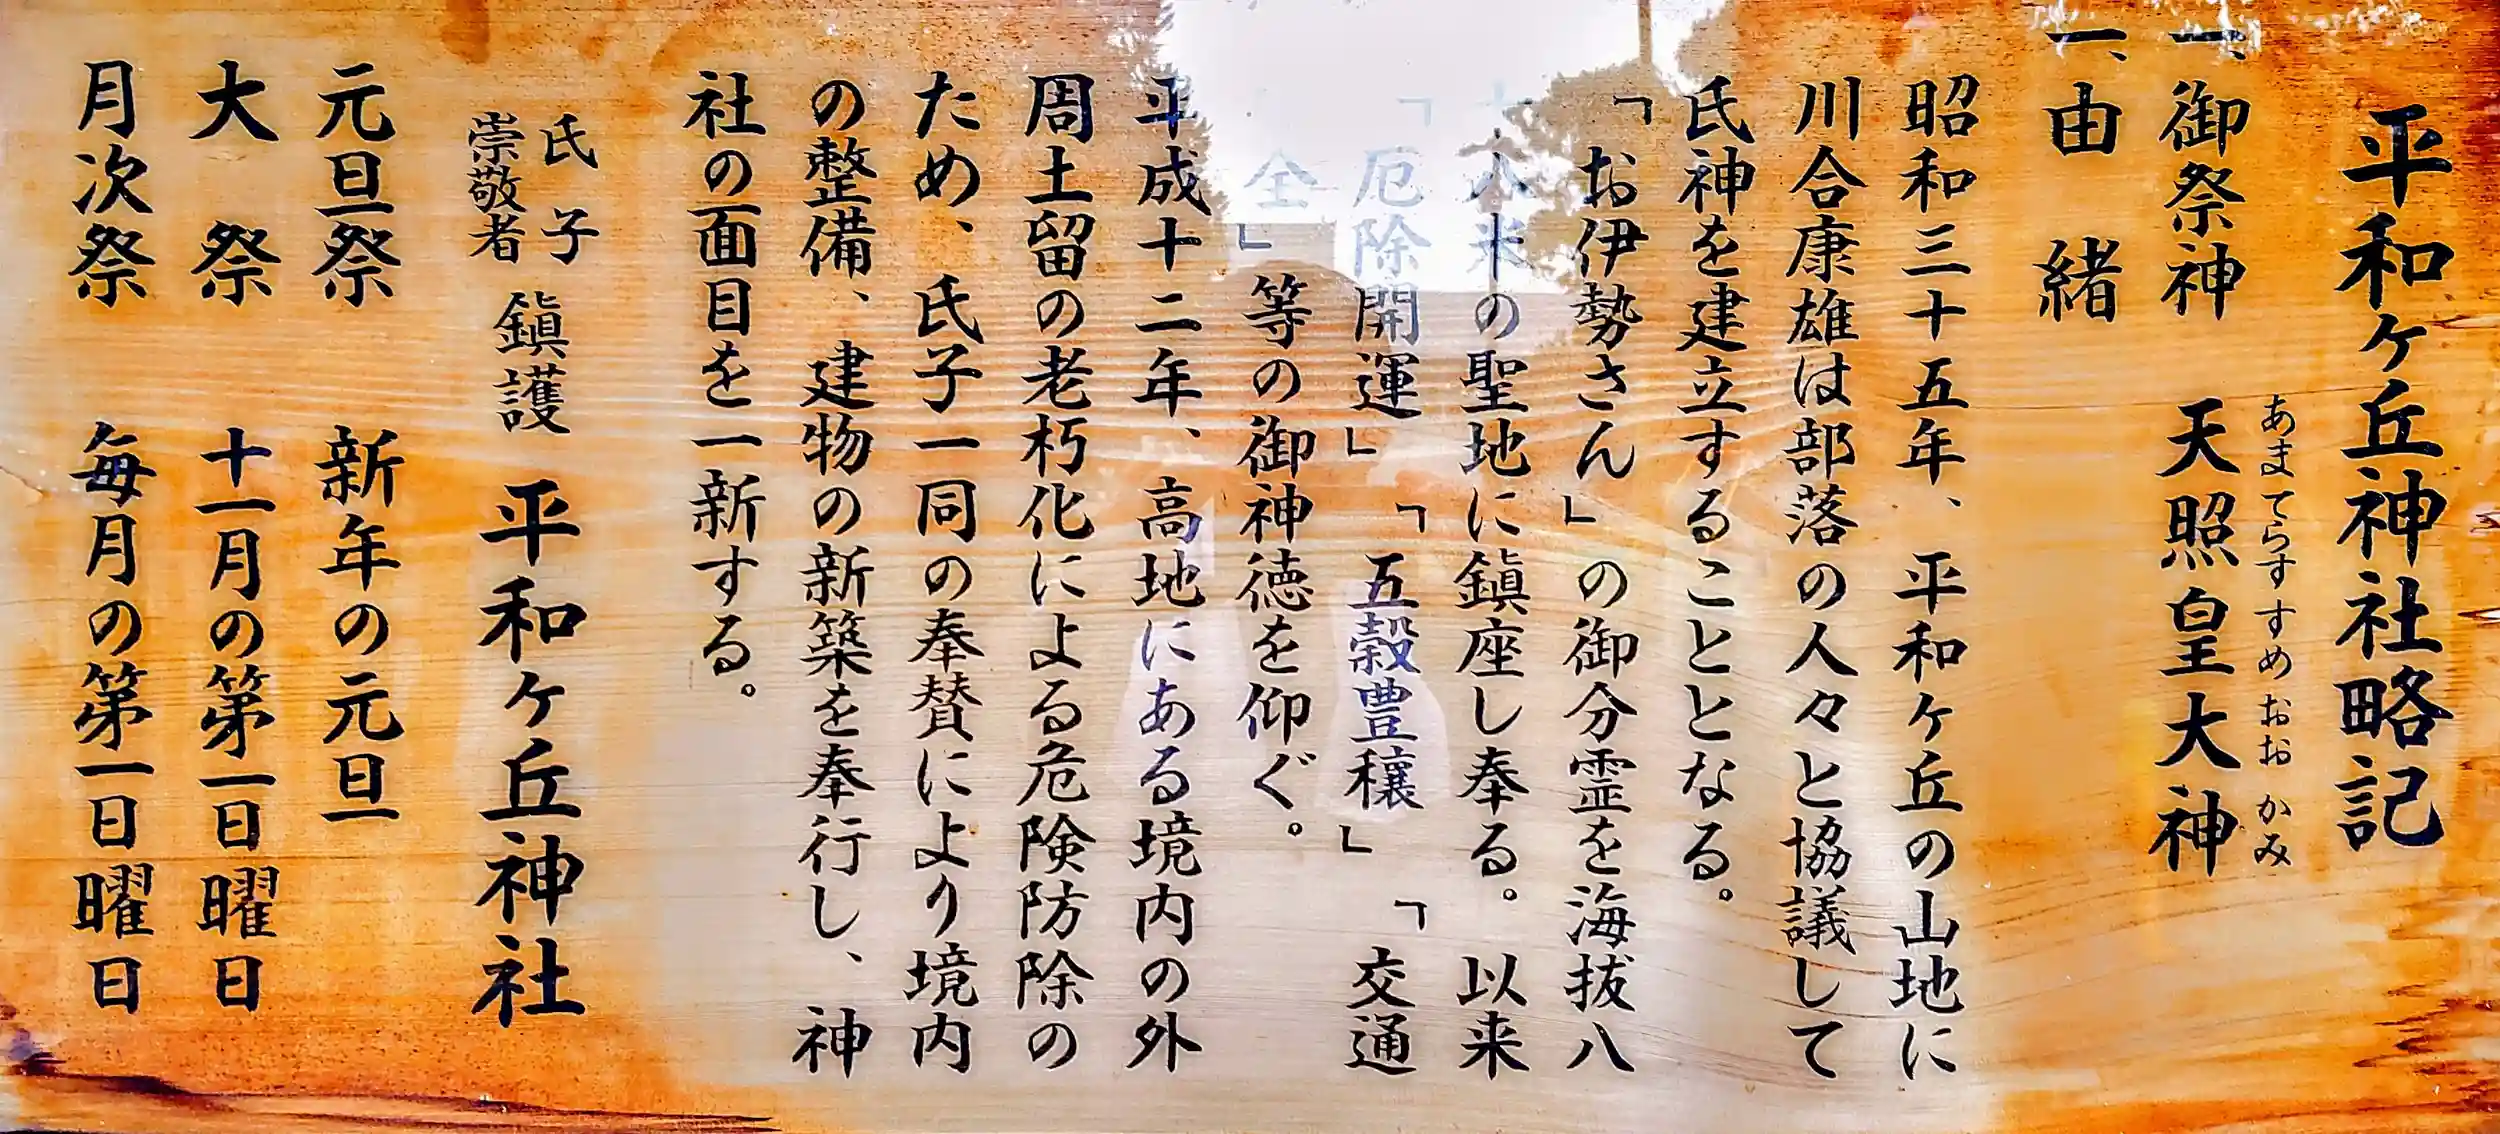 平和ヶ丘神社略記
あまてらすすめおおかみ
一、御祭神　天照皇大神
一、由　緒
昭和三十五年、平和ヶ丘の山地に
川合康雄は部落の人々と協議して
氏神を建立することとなる。
「お伊勢さん」の御分霊を海抜八
八米の聖地に鎮座し奉る。以来
「厄除開運」「五穀豊穣」「交通
全」等の御神徳を仰ぐ。
平成十二年、高地にある境内の外
周土留の老朽化による危険防除の
ため、氏子一同の奉賛により境内
の整備、建物の新築を奉行し、神
社の面目を一新する。
氏子
崇敬者
鎭護　平和ヶ丘神社
元旦祭　新年の元旦
大　祭　十一月の第一日曜日
月次祭　毎月の第一日曜日